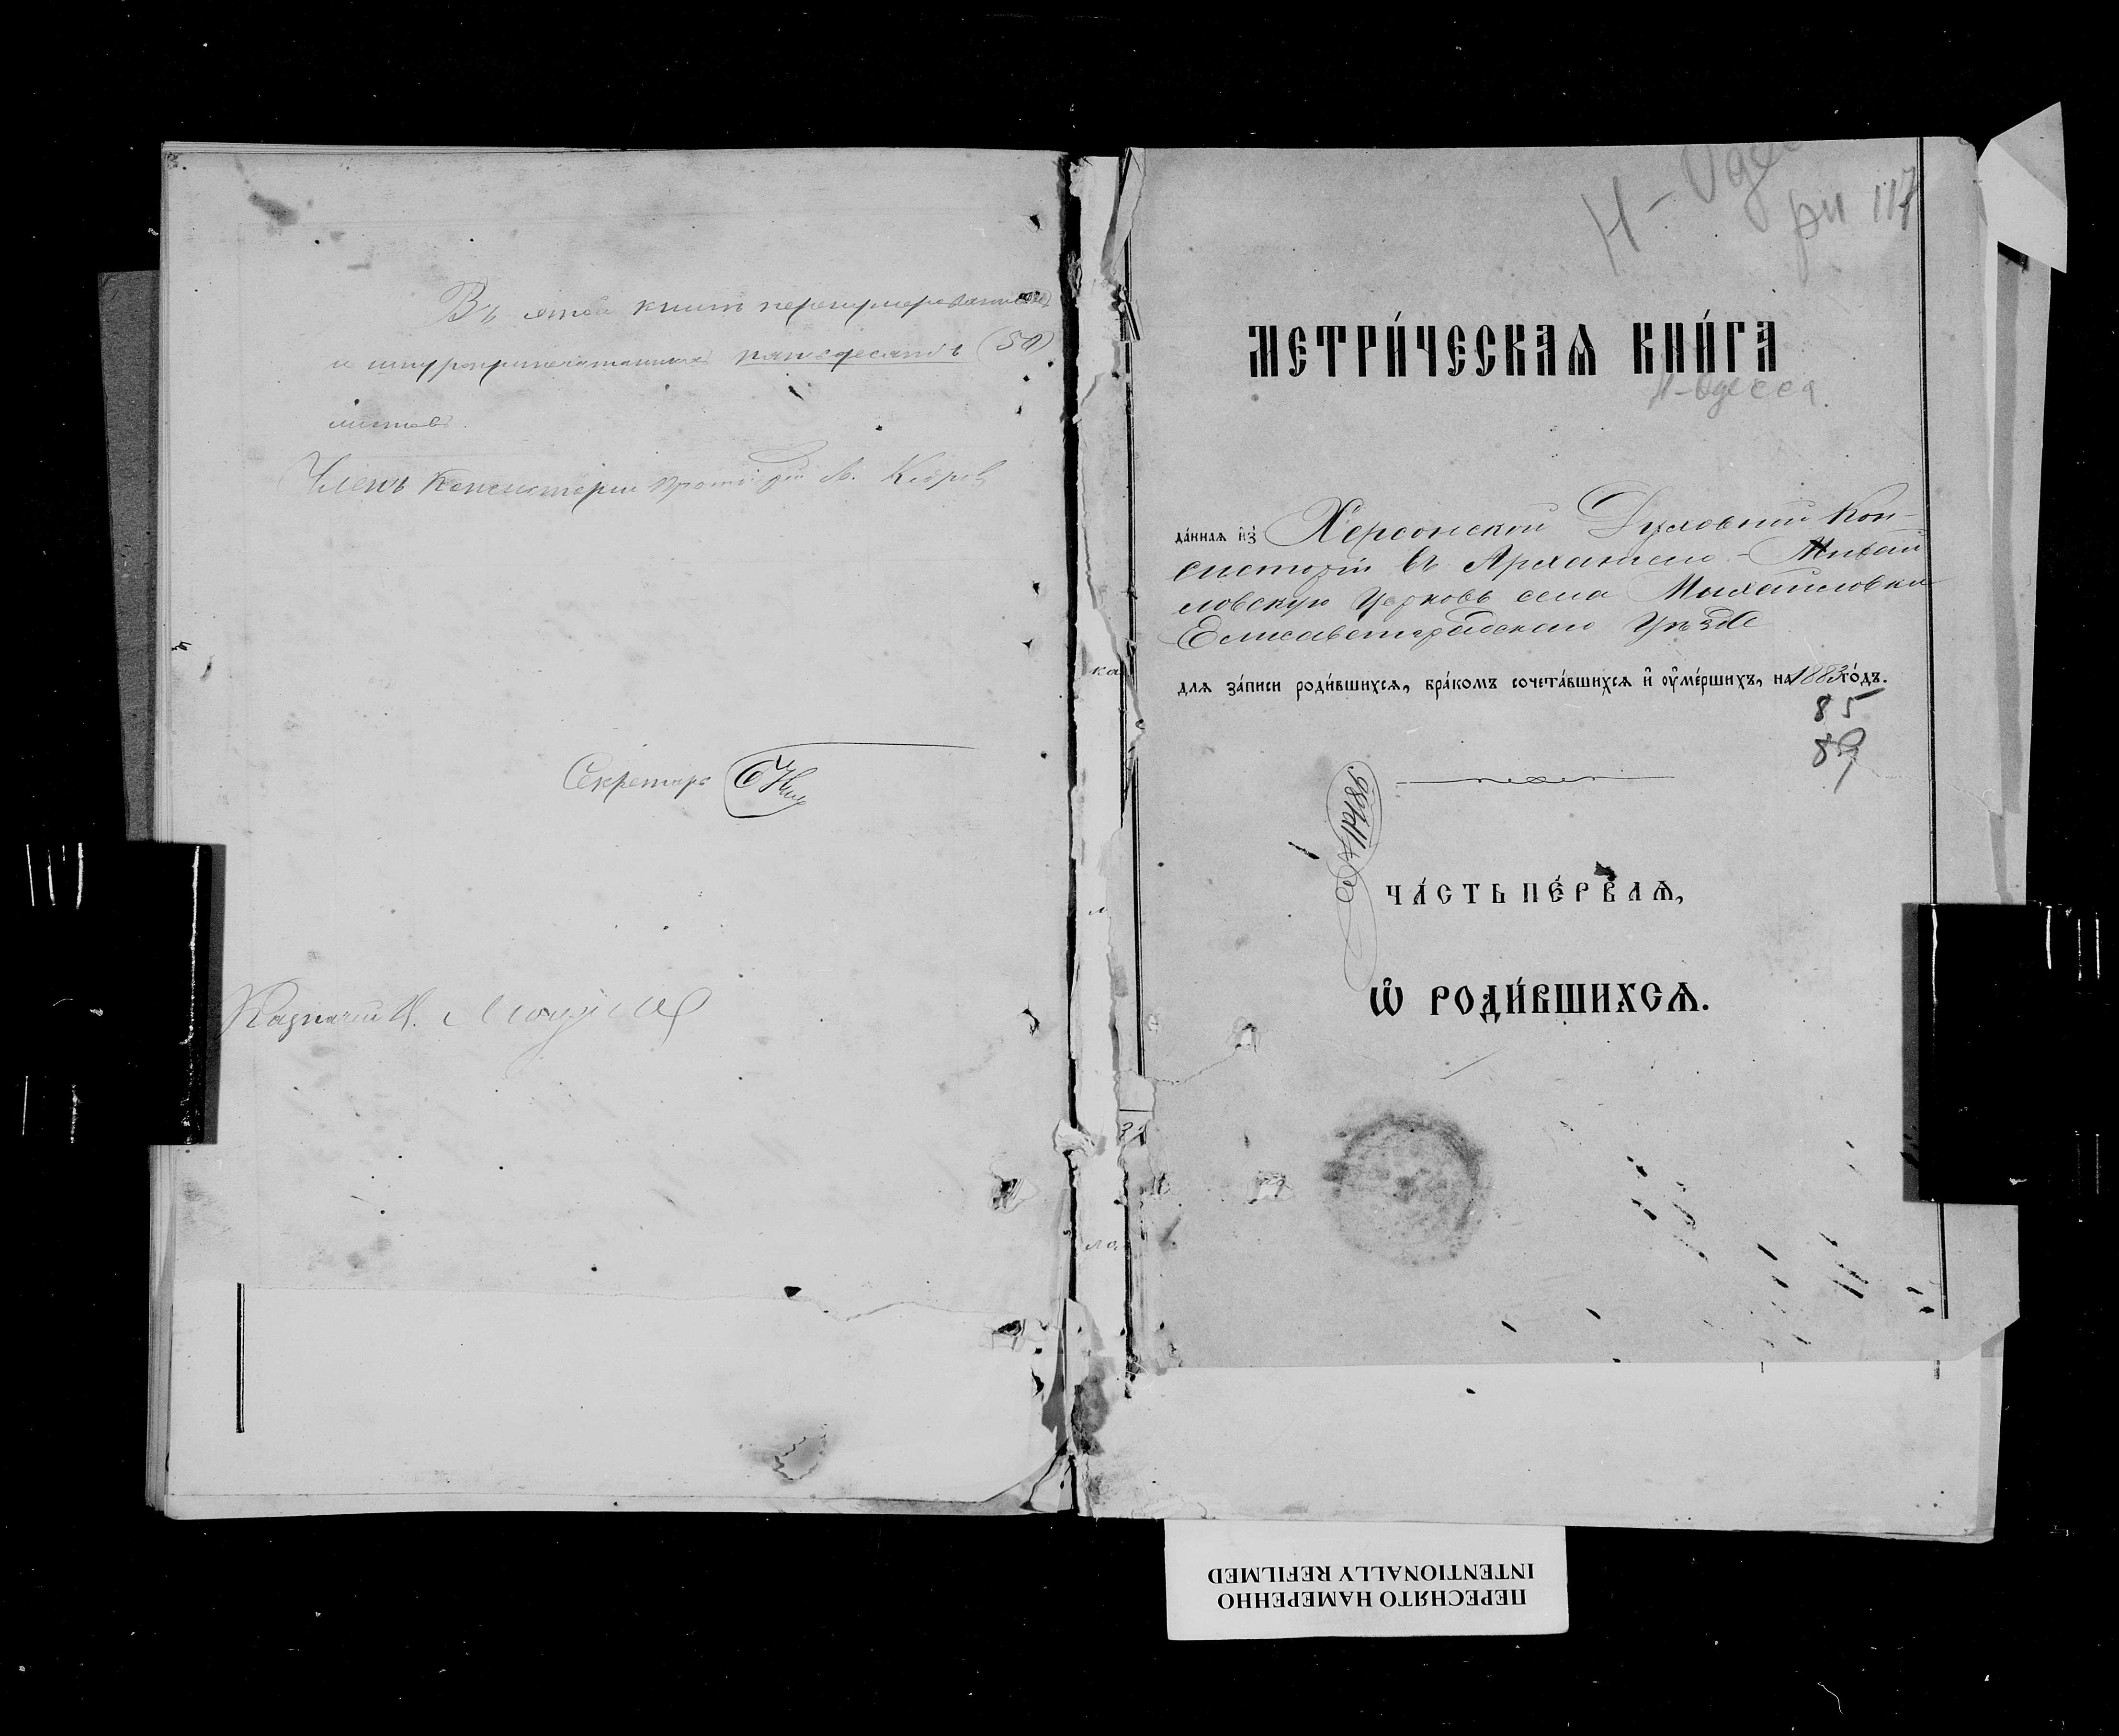 Въ этой книгѣ перенумерованныхъ
и шнуроприпечатанныхъ пятьдесятъ (50)
листовъ.
Членъ Консисторіи
Секретарь
Казначей
Н-Одес
рн 117
МЕТРИ́ЧЕСКАѦ КНИ́ГА
Н-Одесса.
да́ннаѧ и҆з̾ Херсонской Духовной Кон-
систоріи въ Архангело-Михай
ловскую Церковь села Михайловки
Елисаветградскаго Уѣзда
длѧ за́писи роди́вшихсѧ, бра́комъ сочета́вшихсѧ и҆ оу҆ме́ршихъ, на 1883 го́дъ.
85
89
ЧА́СТЬ ПЕ́РВАѦ,
Ѡ҆ РОДИ́ВШИХСѦ.
ПЕРЕСНЯТО НАМЕРЕННО
INTENTIONALLY REFILMED